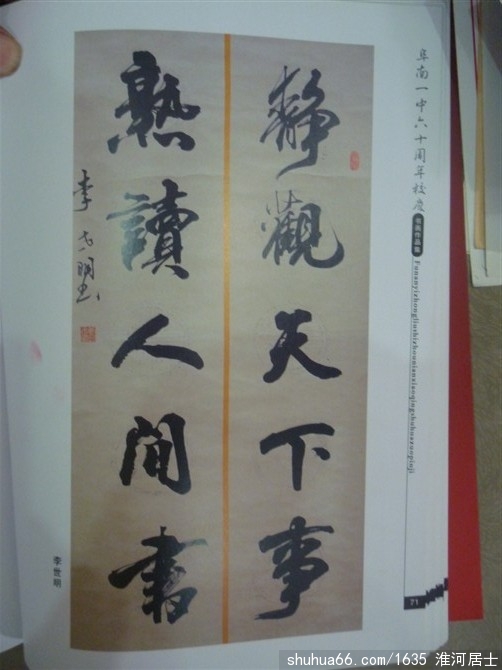 静觀天下事
熟讀人间書
李世明书
阜南一中六十周年校庆
书画作品集
Funanyizhongliushizhounianxiaoqingshuhuazuopinji
李世明
71
shuhua66.com/1635 淮河居士